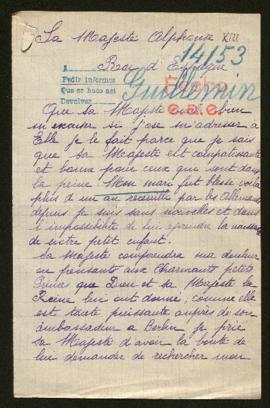 Sa Majesté Alphonse XIII
14153
Roi d'Espagne
Pedir informes
Que se haco así
Devolver
Guillemin
Que sa Majesté veuille bien
m'excuser si j'ose m'adresser à
Elle je le fait parce que je sais
que sa Majesté est compatissante
et bonne pour ceux qui sont dans
la peine Mon mari fut blessé voilà
plus d'un an recueilli par les allemands
depuis je suis sans nouvelles et dans
l'impossibilité de lui apprendre la naissance
de notre petit enfant.
Sa Majesté comprendra ma douleur
en pensants aux Charmants petits
Princes que Dieu et sa Majesté la
Reine lui ont donné, comme elle
est toute puissante auprès de son
ambassadeur à Berlin je prie
sa Majesté d'avoir la bonté de
lui demander de rechercher mon